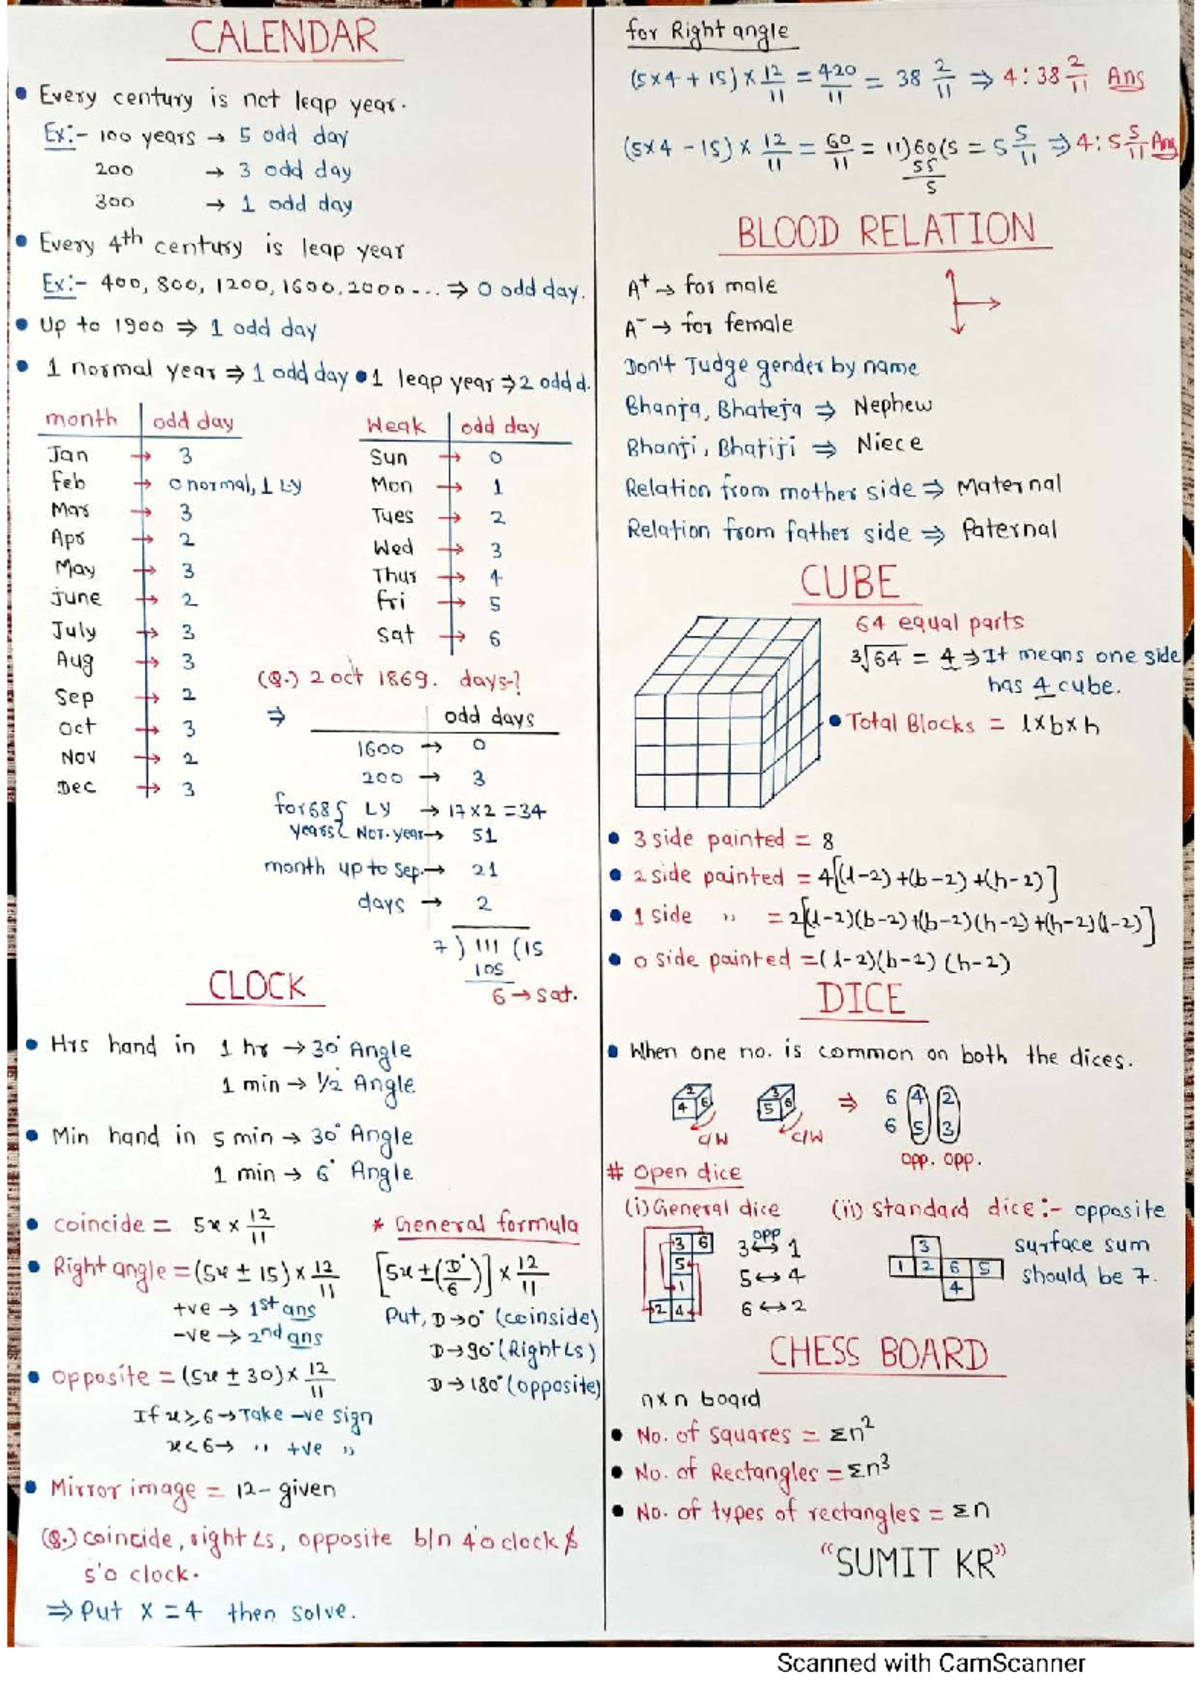 CALENDAR
• Every century is not leap year.
Ex:- 100 years → 5 odd day
200 → 3 odd day
300 → 1 odd day
• Every 4th century is leap year
Ex:- 400, 800, 1200, 1600, 2000 --- ⇒ 0 odd day.
• Up to 1900 ⇒ 1 odd day
• 1 normal year ⇒ 1 odd day • 1 leap year ⇒ 2 odd d.
month odd day
Jan → 3
Feb → 0 normal, 1 LY
Mar → 3
Apr → 2
May → 3
June → 2
July → 3
Aug → 3
Sep → 2
Oct → 3
Nov → 2
Dec → 3
Weak odd day
Sun → 0
Mon → 1
Tues → 2
Wed → 3
Thur → 4
Fri → 5
Sat → 6
(Q.) 2 oct 1869. days-?
⇒ odd days
1600 → 0
200 → 3
for 68 { LY → 17×2 = 34
years { Nor. year → 51
month up to Sep. → 21
days → 2
7 ) 111 (15
105
6 → Sat.
CLOCK
• Hrs hand in 1 hr → 30° Angle
1 min → 1/2° Angle
• Min hand in 5 min → 30° Angle
1 min → 6° Angle
• coincide = 5x × 12/11
• Right angle = (5x ± 15) × 12/11
+ve → 1st ans
-ve → 2nd ans
• opposite = (5x ± 30) × 12/11
If x ≥ 6 → Take -ve sign
x < 6 → " +ve "
* General formula
[5x ± (D°/6)] × 12/11
Put, D → 0° (coinside)
D → 90° (Right ∠s)
D → 180° (opposite)
• Mirror image = 12 - given
(Q.) coincide, right ∠s, opposite b/n 4'o clock &
5'o clock.
⇒ Put X = 4 then solve.
for Right angle
(5×4 + 15) × 12/11 = 420/11 = 38 2/11 ⇒ 4:38 2/11 Ans
(5×4 - 15) × 12/11 = 60/11 = 11)60(5 = 5 5/11 ⇒ 4:5 5/11 Ans
55
5
BLOOD RELATION
A+ → for male
A- → for female
Don't Judge gender by name
Bhanja, Bhateja ⇒ Nephew
Bhanji, Bhatiji ⇒ Niece
Relation from mother side ⇒ Maternal
Relation from father side ⇒ Paternal
CUBE
64 equal parts
3√64 = 4 ⇒ It means one side
has 4 cube.
• Total Blocks = l×b×h
• 3 side painted = 8
• 2 side painted = 4[(l-2)+(b-2)+(h-2)]
• 1 side " = 2[(l-2)(b-2)+(b-2)(h-2)+(h-2)(l-2)]
• 0 side painted = (l-2)(b-2)(h-2)
DICE
• When one no. is common on both the dices.
2 4 6
3 5 6
⇒ 6 4 2
6 5 3
C/W C/W
opp. opp.
# Open dice
(i) General dice
3 6
5
1
2 4
opp
3 ↔ 1
5 ↔ 4
6 ↔ 2
(ii) Standard dice :- opposite
surface sum
should be 7.
3
1 2 6 5
4
CHESS BOARD
n×n board
• No. of squares = Σn²
• No. of Rectangles = Σn³
• No. of types of rectangles = Σn
"SUMIT KR"
Scanned with CamScanner